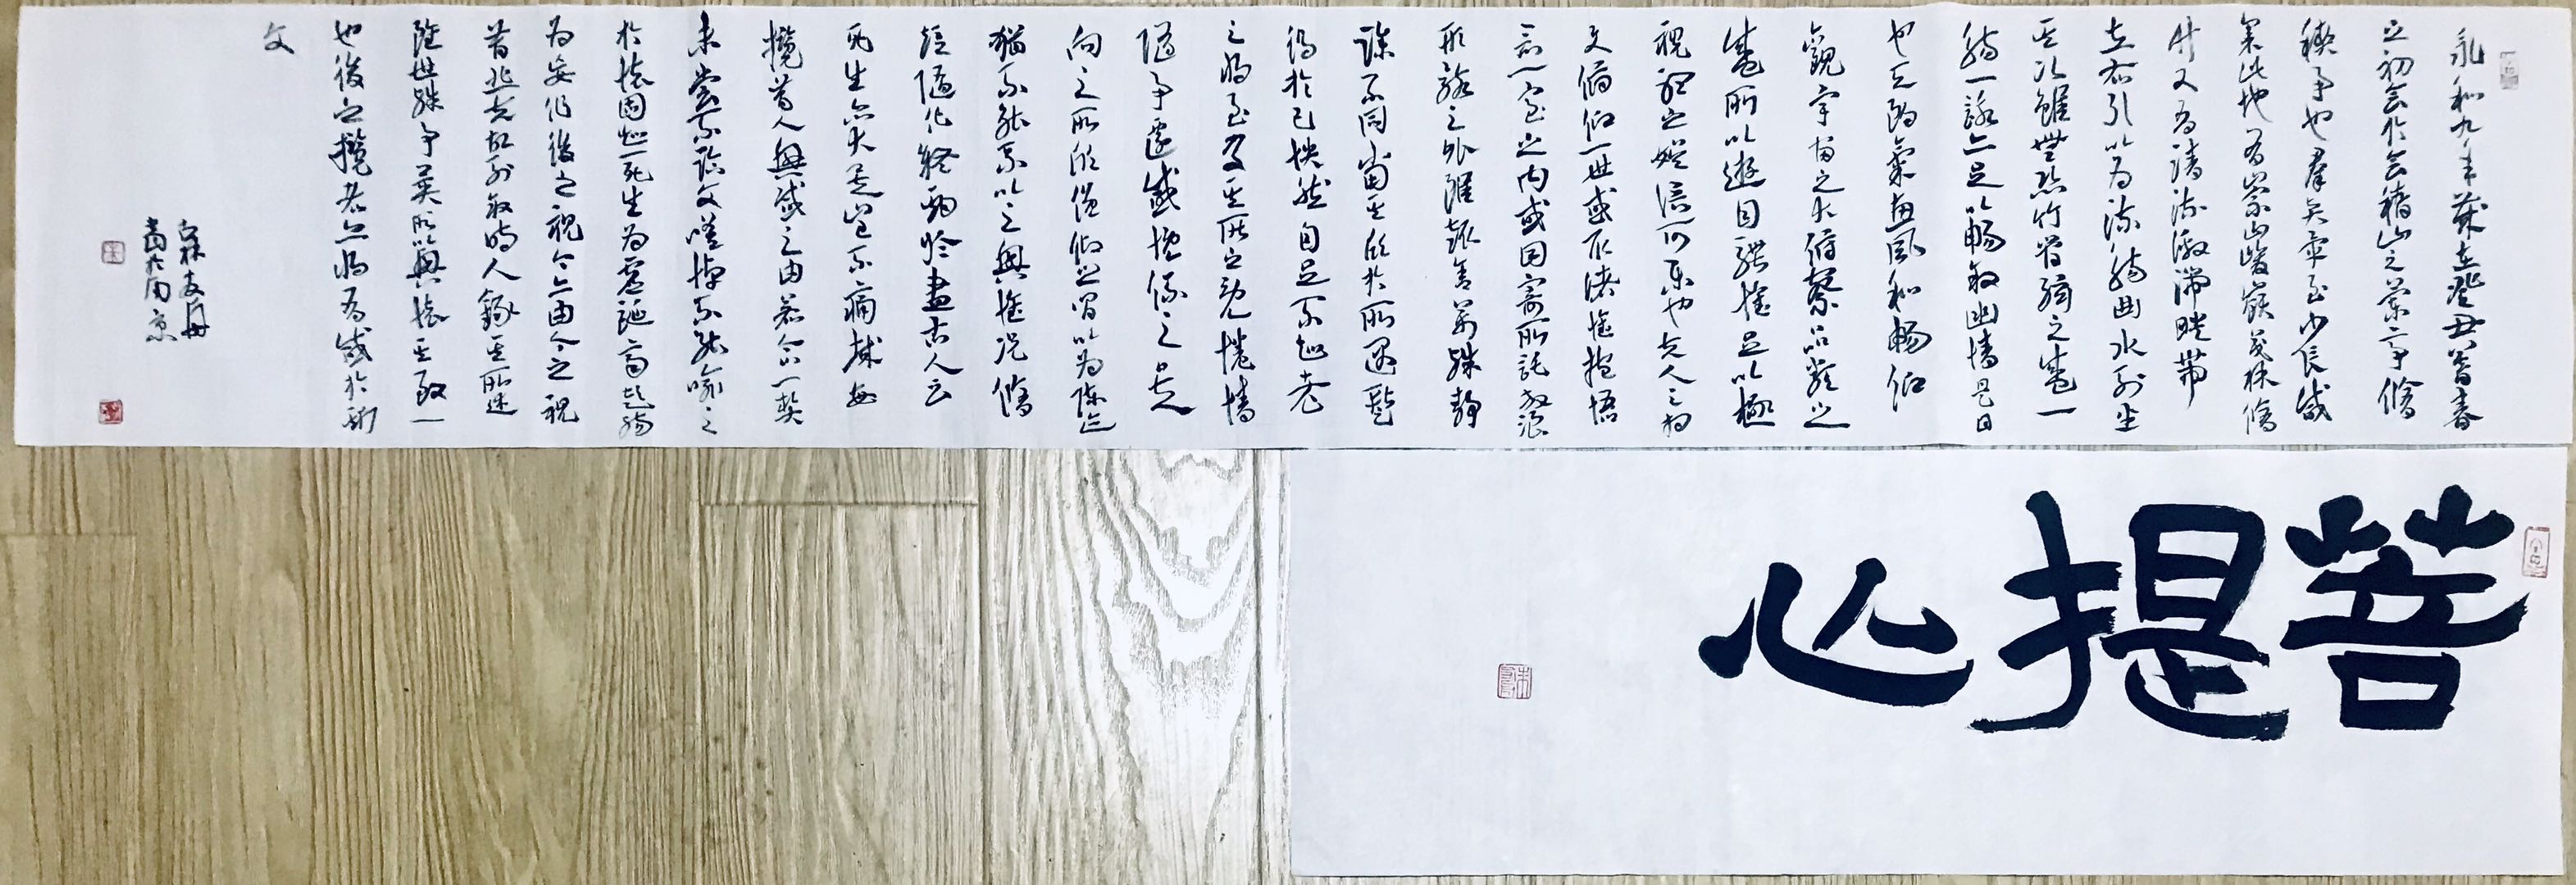 永和九年歲在癸丑暮春
之初會於會稽山之蘭亭脩
禊事也群賢畢至少長咸
集此地有崇山峻嶺茂林脩
竹又有清流激湍映帶
左右引以為流觴曲水列坐
其次雖無絲竹管弦之盛一
觴一詠亦足以暢敘幽情是日
也天朗氣惠風和暢仰
觀宇宙之大俯察品類之
盛所以遊目騁懷足以極
視聽之娛信可樂也夫人之相
與俯仰一世或取諸懷抱悟
言一室之內或因寄所託放浪
形骸之外雖趣舍萬殊靜
躁不同當其欣於所遇暫
得於己怏然自足不知老
之將至及其所之既倦情
隨事遷感慨係之矣
向之所欣俛仰之間以為陳迹
猶不能不以之興懷況脩
短隨化終期於盡古人云
死生亦大矣豈不痛哉每
攬昔人興感之由若合一契
未嘗不臨文嗟悼不能喻之
於懷固知一死生為虛誕齊彭殤
為妄作後之視今亦由今之視
昔悲夫故列敘時人錄其所述
雖世殊事異所以興懷其致一
也後之攬者亦將有感於斯
文
書於南京
菩提心